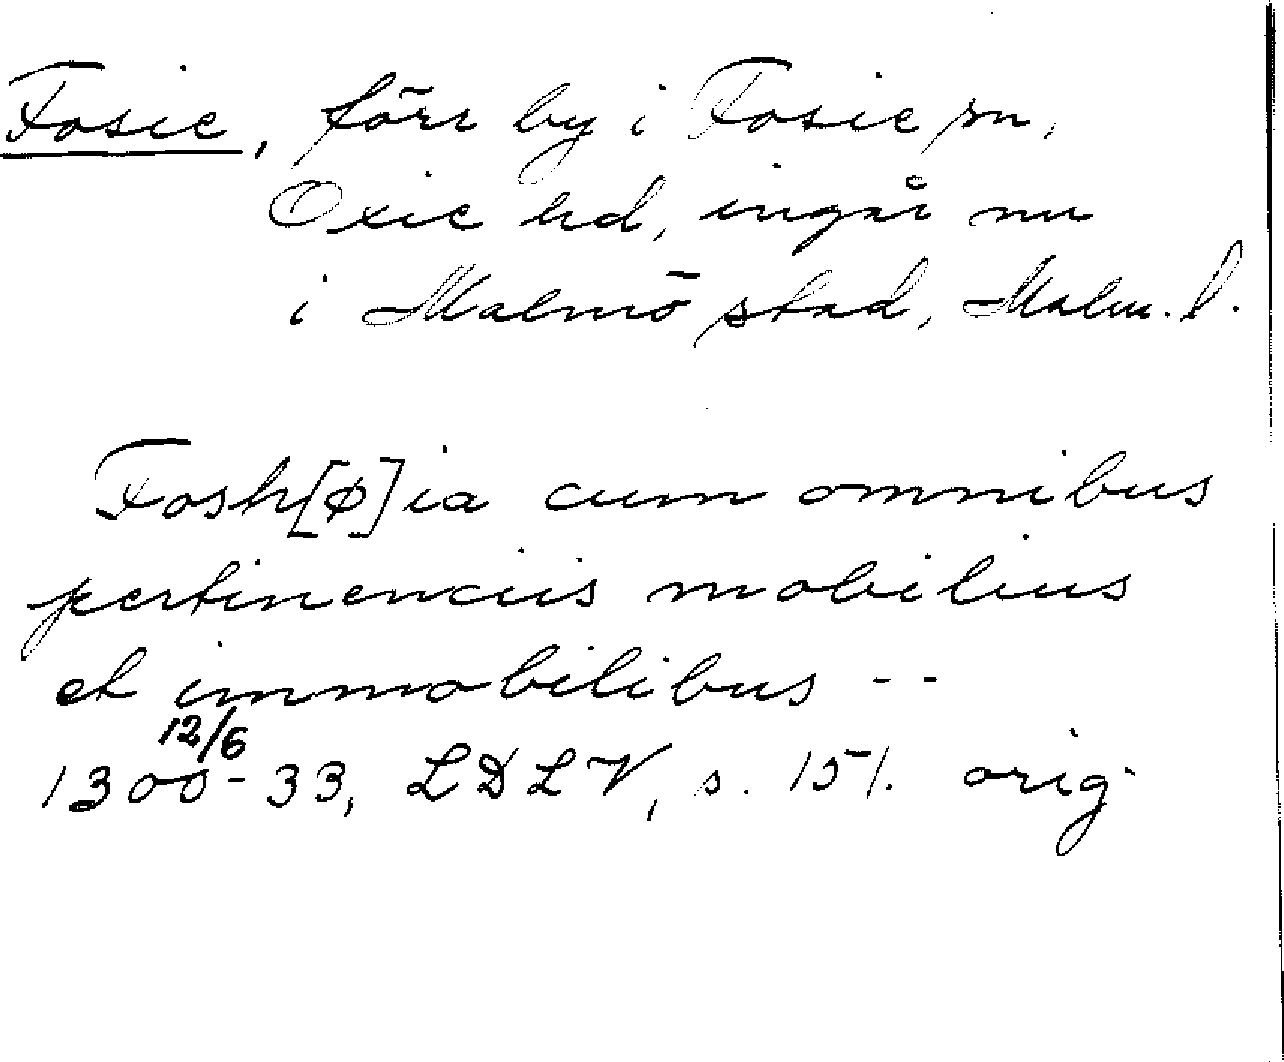 Fosie, förr by i Fosie sn,
Oxie hd, ingår nu
i Malmö stad, Malm. l.
Fosh[ø]ia cum omnibus
pertinenciis mobilius
et immobilibus --
12/6
1300-33, LDLV, s. 151. orig.